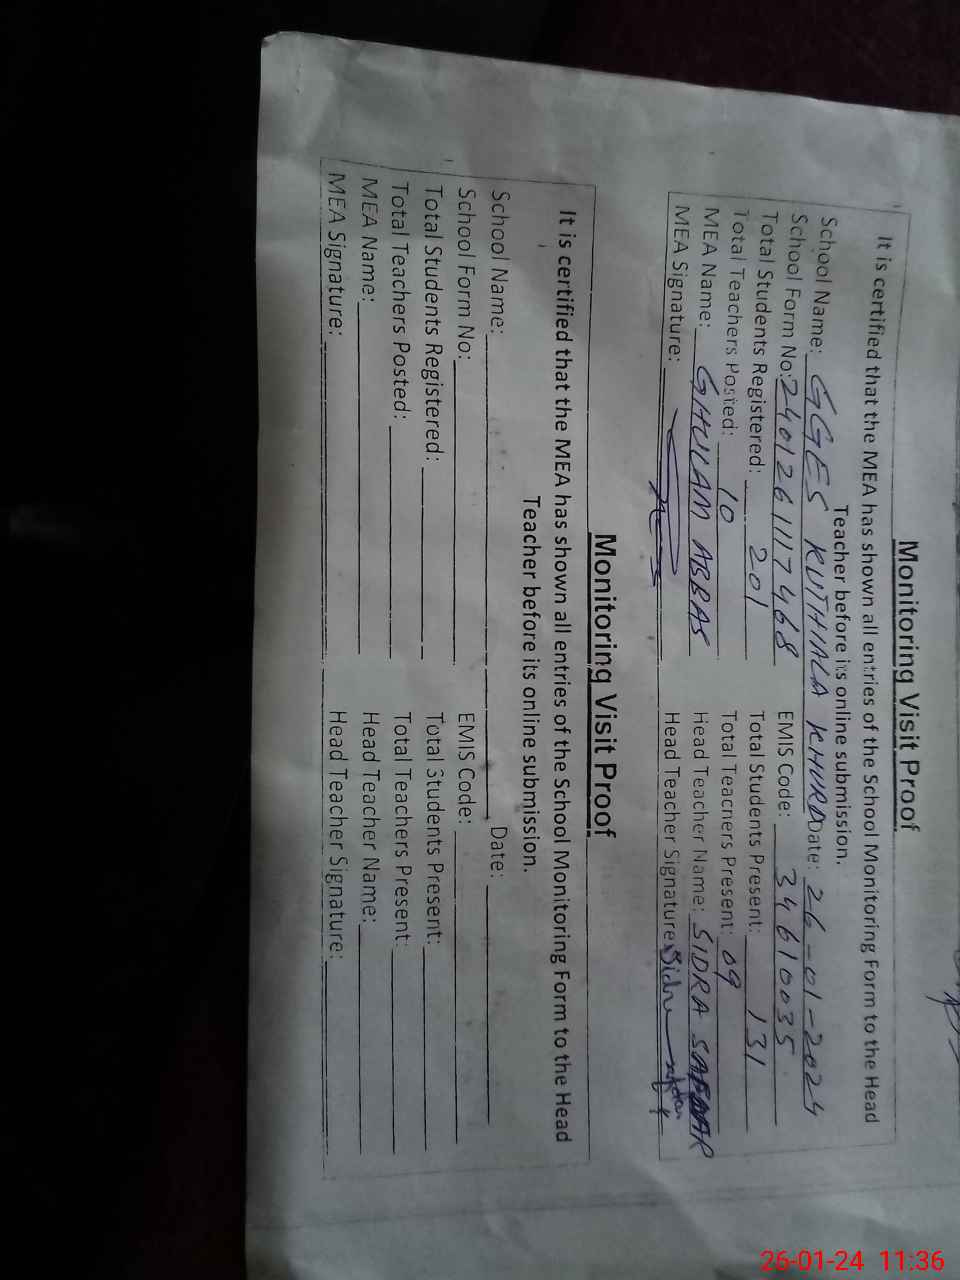 Monitoring Visit Proof
It is certified that the MEA has shown all entries of the School Monitoring Form to the Head
Teacher before its online submission.
School Name: GGES KUTHIALA KHURD Date: 26-01-2024
School Form No: 2401261117468 EMIS Code: 34610035
Total Students Registered: 201 Total Students Present: 131
Total Teachers Posted: 10 Total Teachers Present: 09
MEA Name: GHULAM ABBAS Head Teacher Name: SIDRA SAFDAR
MEA Signature: Head Teacher Signature: Sidra Safdar
Monitoring Visit Proof
It is certified that the MEA has shown all entries of the School Monitoring Form to the Head
Teacher before its online submission.
School Name: Date:
School Form No: EMIS Code:
Total Students Registered: Total Students Present:
Total Teachers Posted: Total Teachers Present:
MEA Name: Head Teacher Name:
MEA Signature: Head Teacher Signature:
26-01-24 11:36